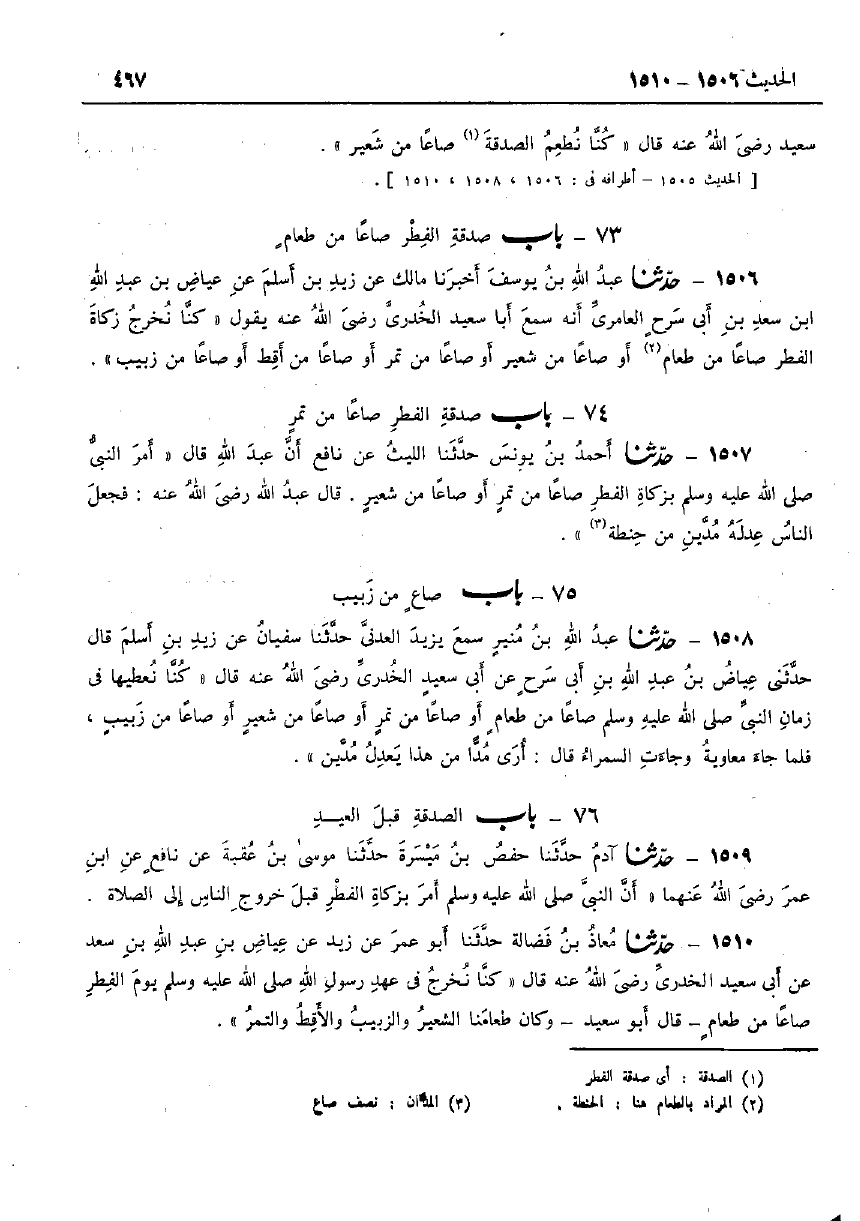 الحديث ١٥٠٦ – ١٥١٠ ٤٦٧
سعيد رضىَ اللهُ عنه قال « كُنَّا نُطعِمُ الصدقةَ (١) صاعًا من شَعير » .
[ الحديث ١٥٠٥ – أطرافه فى : ١٥٠٦ ، ١٥٠٨ ، ١٥١٠ ] .
٧٣ – باب صدقةِ الفِطْر صاعًا من طعامٍ
١٥٠٦ – حدّثنا عبدُ الله بنُ يوسفَ أخبرَنا مالك عن زيدِ بن أسلمَ عن عياضِ بن عبدِ اللهِ
ابن سعدِ بنِ أبى سَرحٍ العامرىِّ أنه سمعَ أبا سعيد الخُدرىَّ رضىَ اللهُ عنه يقول « كنَّا نُخرجُ زكاةَ
الفطر صاعًا من طعام (٢) أو صاعًا من شعير أو صاعًا من تمر أو صاعًا من أقِط أو صاعًا من زبيب » .
٧٤ – باب صدقةِ الفطرِ صاعًا من تمرٍ
١٥٠٧ – حدّثنا أحمدُ بنُ يونسَ حدَّثَنا الليثُ عن نافع أنَّ عبدَ اللهِ قال « أمرَ النبىُّ
صلى الله عليه وسلم بزكاةِ الفطرِ صاعًا من تمرٍ أو صاعًا من شعيرٍ . قال عبدُ الله رضىَ اللهُ عنه : فجعلَ
الناسُ عِدلَهُ مُدَّينِ من حِنطة (٣) » .
٧٥ – باب صاعٍ من زَبيب
١٥٠٨ – حدّثنا عبدُ اللهِ بنُ مُنيرٍ سمعَ يزيدَ العدنىَّ حدَّثَنا سفيانُ عن زيدِ بنِ أسلمَ قال
حدَّثَنى عِياضُ بنُ عبدِ اللهِ بنِ أبى سَرحٍ عن أبى سعيدٍ الخُدرىِّ رضىَ اللهُ عنه قال « كُنَّا نُعطيها فى
زمانِ النبىِّ صلى الله عليهِ وسلم صاعًا من طعامٍ أو صاعًا من تمرٍ أو صاعًا من شعيرٍ أو صاعًا من زَبيبٍ ،
فلما جاءَ معاويةُ وجاءَتِ السمراءُ قال : أُرَى مُدًّا من هذا يَعدِلُ مُدَّين » .
٧٦ – باب الصدقةِ قبلَ العيـدِ
١٥٠٩ – حدّثنا آدمُ حدَّثَنا حفصُ بنُ مَيْسَرةَ حدَّثَنا موسىٰ بنُ عُقبةَ عن نافعٍ عنِ ابنِ
عمرَ رضىَ اللهُ عَنهما « أنَّ النبىَّ صلى الله عليه وسلم أمرَ بزكاةِ الفطْرِ قبلَ خروجِ الناسِ إلى الصلاة .
١٥١٠ – حدّثنا مُعاذُ بنُ فَضالة حدَّثَنا أبو عمرَ عن زيد عن عِياضِ بنِ عبدِ اللهِ بنِ سعد
عن أبى سعيد الخدرىِّ رضىَ اللهُ عنه قال « كنَّا نُخرجُ فى عهدِ رسولِ اللهِ صلى الله عليه وسلم يومَ الفِطرِ
صاعًا من طعامٍ – قال أبو سعيد – وكان طعامَنا الشعيرُ والزبيبُ والأَقِطُ والتمرُ » .
(١) الصدقة : أى صدقة الفطر
(٢) المراد بالطعام هنا : الحنطة . (٣) المدان : نصف صاع